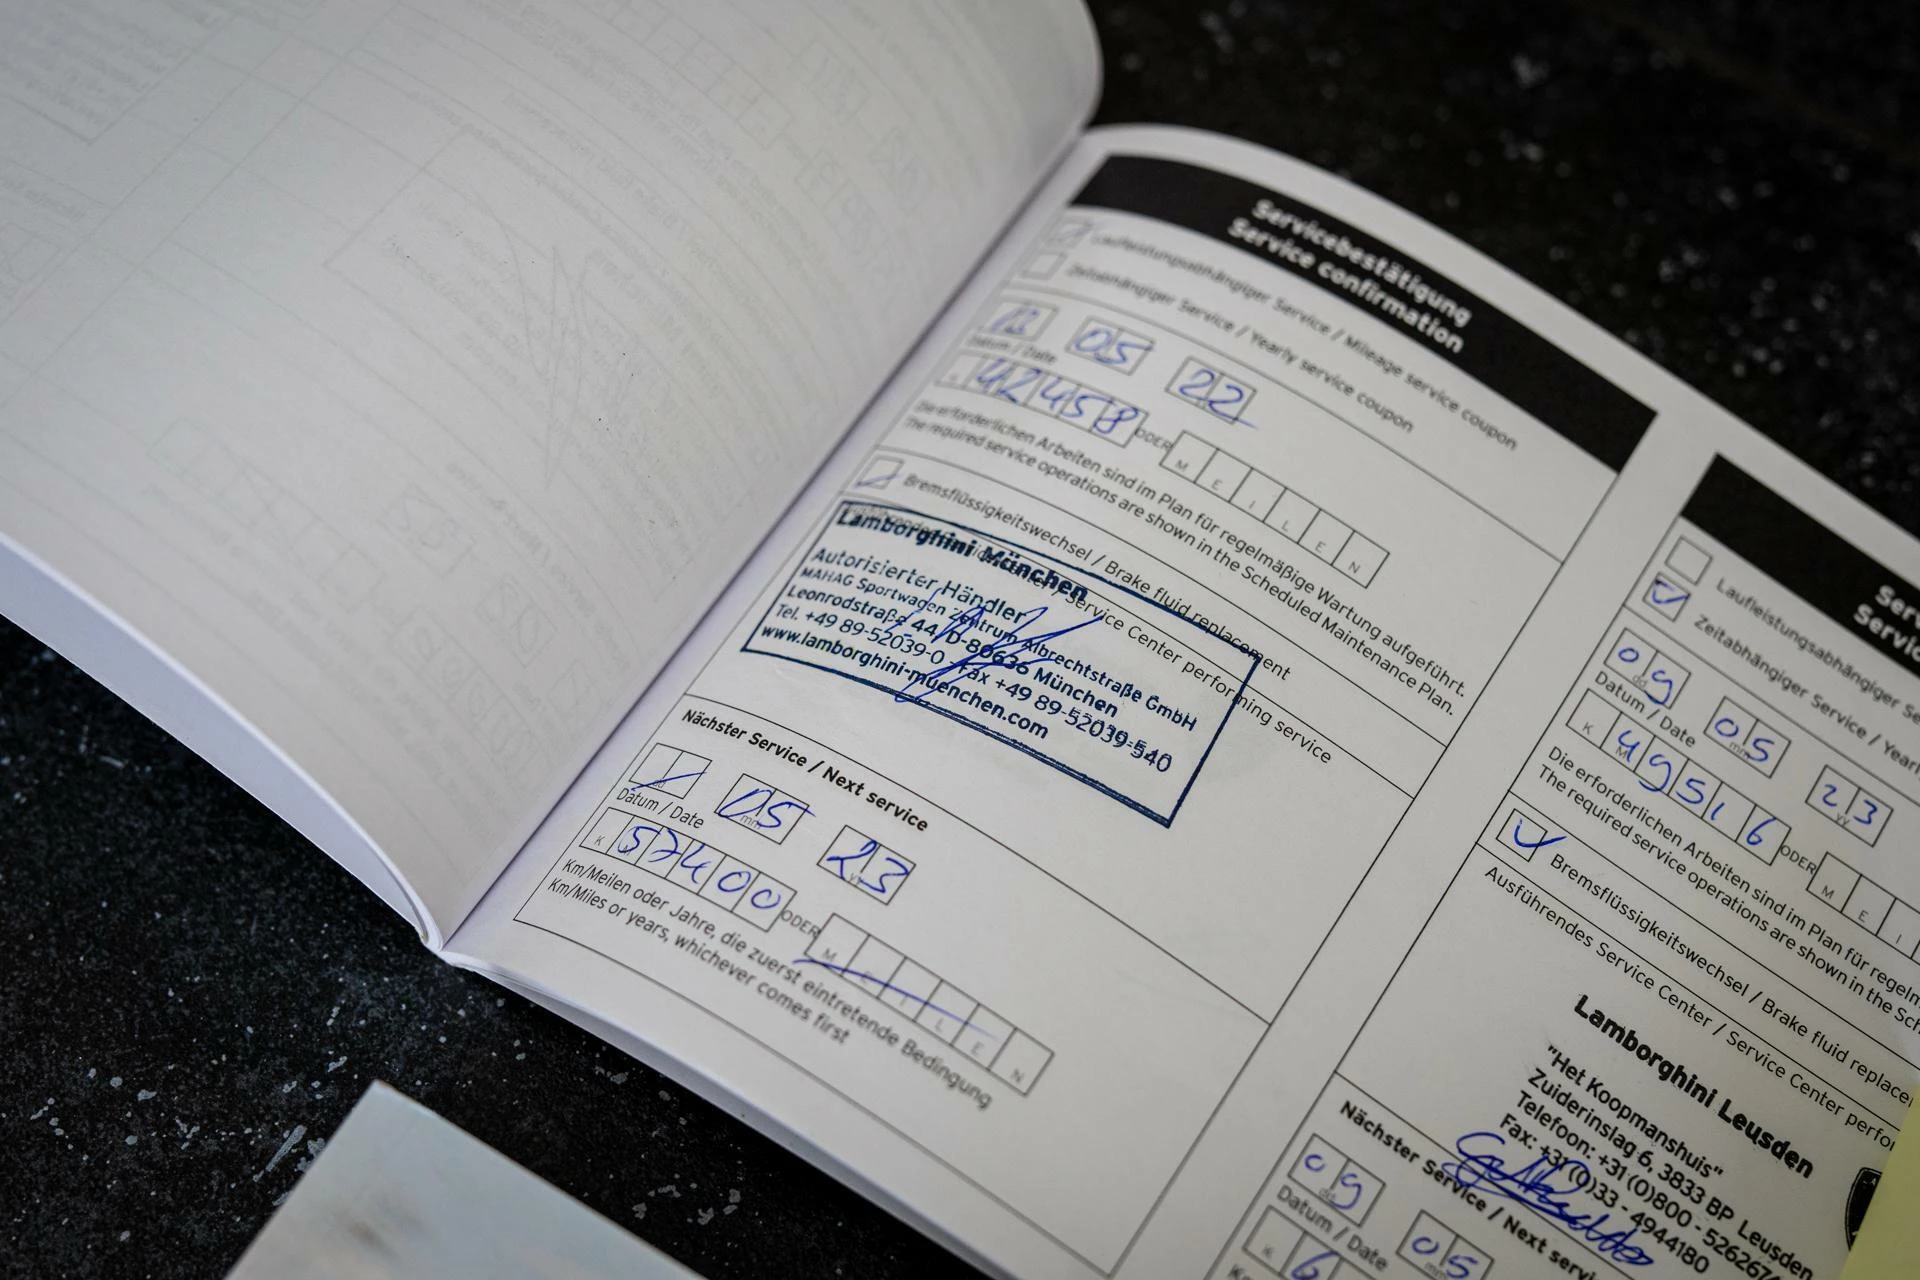 Servicebestätigung
Service confirmation
Laufleistungsabhängiger Service / Mileage service coupon
Zeitabhängiger Service / Yearly service coupon
05 22
Datum / Date
42458 ODER MEILEN
Die erforderlichen Arbeiten sind im Plan für regelmäßige Wartung aufgeführt.
The required service operations are shown in the Scheduled Maintenance Plan.
Bremsflüssigkeitswechsel / Brake fluid replacement
Service Center performing service
Lamborghini München
Autorisierter Händler
MAHAG Sportwagen Zentrum Albrechtstraße GmbH
Leonrodstraße 44, D-80636 München
Tel. +49 89-52039-0 Fax +49 89-52039-540
www.lamborghini-muenchen.com
Nächster Service / Next service
dd 05 mm 23
Datum / Date
K 57400 ODER MEILEN
Km/Meilen oder Jahre, die zuerst eintretende Bedingung
Km/Miles or years, whichever comes first
Laufleistungsabhängiger
Zeitabhängiger Service /
09 dd 05 mm 23 yy
Datum / Date
KM 49516 ODER MEI
Die erforderlichen Arbeiten sind im Plan für
The required service operations are shown in the
Bremsflüssigkeitswechsel / Brake fluid
Ausführendes Service Center / Service Center
Lamborghini Leusden
"Het Koopmanshuis"
Zuiderinslag 6, 3833 BP Leusden
Telefoon: +31(0)800 - 526267
Fax: +31(0)33 - 4944180
Nächster Service / Next
09 dd 05
Datum / Date
K 6